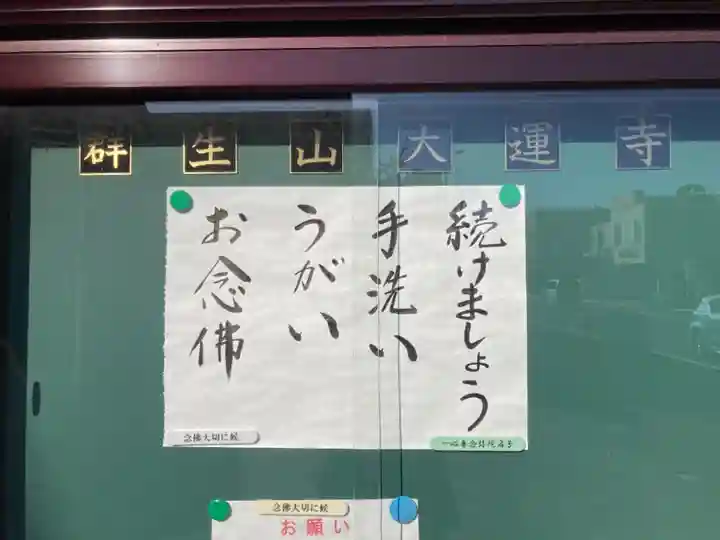 群生山大運寺
続けましょう
手洗い
うがい
お念佛
念佛大切に候
念佛大切に候
お願い